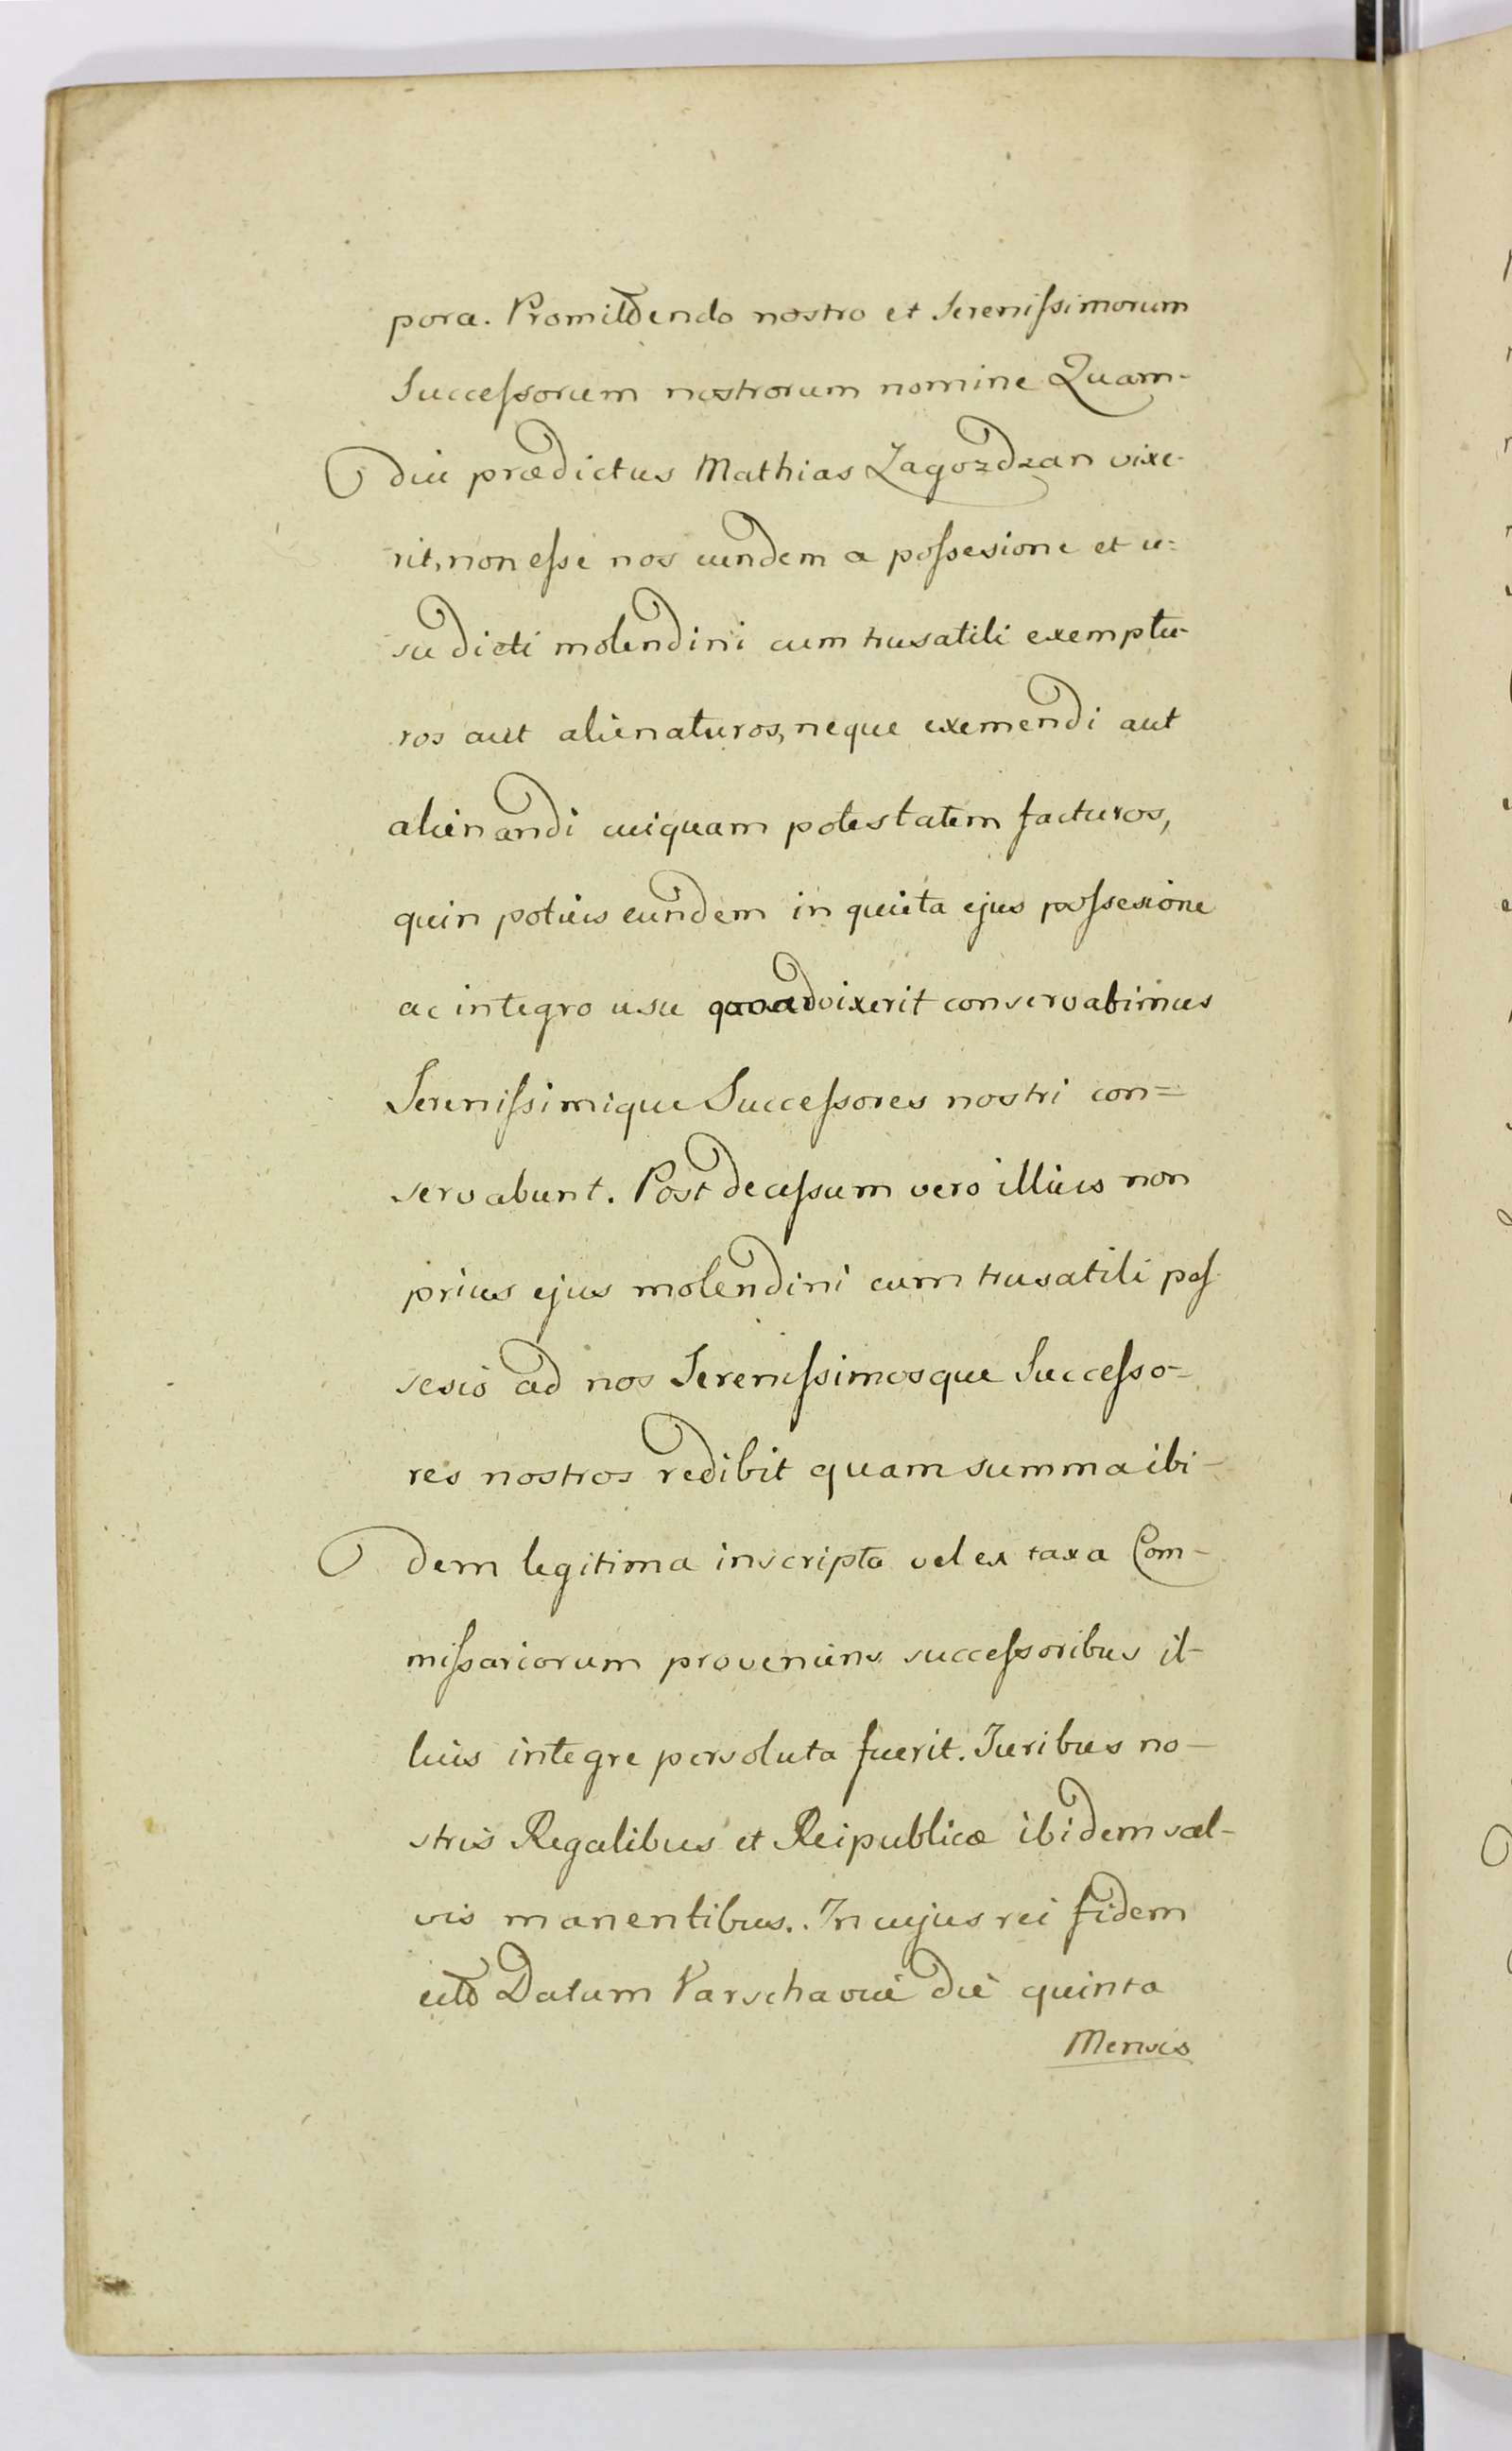 pora. Promittendo nostro et Serenißimorum
Succeßorum nostrorum nomine Quam-
diu prædictus Mathias Zagozdzan vixe-
rit, non eße nos eundem a poßesione et u=
su dicti molendini cum trusatili exemptu-
ros aut alienaturos, neque exemendi aut
alienandi cuiquam potestatem facturos,
quin potius eundem in quieta ejus poßesione
ac integro usu quoad vixerit conservabimus
Serenißimique Succeßores nostri con=
servabunt. Post deceßum vero illius non
prius ejus molendini cum trusatili pos
sesio ad nos Serenißimosque Succeßo=
res nostros redibit quam summa ibi-
dem legitima inscripta vel ex taxa Com-
mißariorum proveniens succeßoribus il-
lius integre persoluta fuerit. Juribus no-
stris Regalibus et Reipublicæ ibidem sal-
vis manentibus. In cujus rei fidem
Datum Varschaviæ die quinta
Mensis